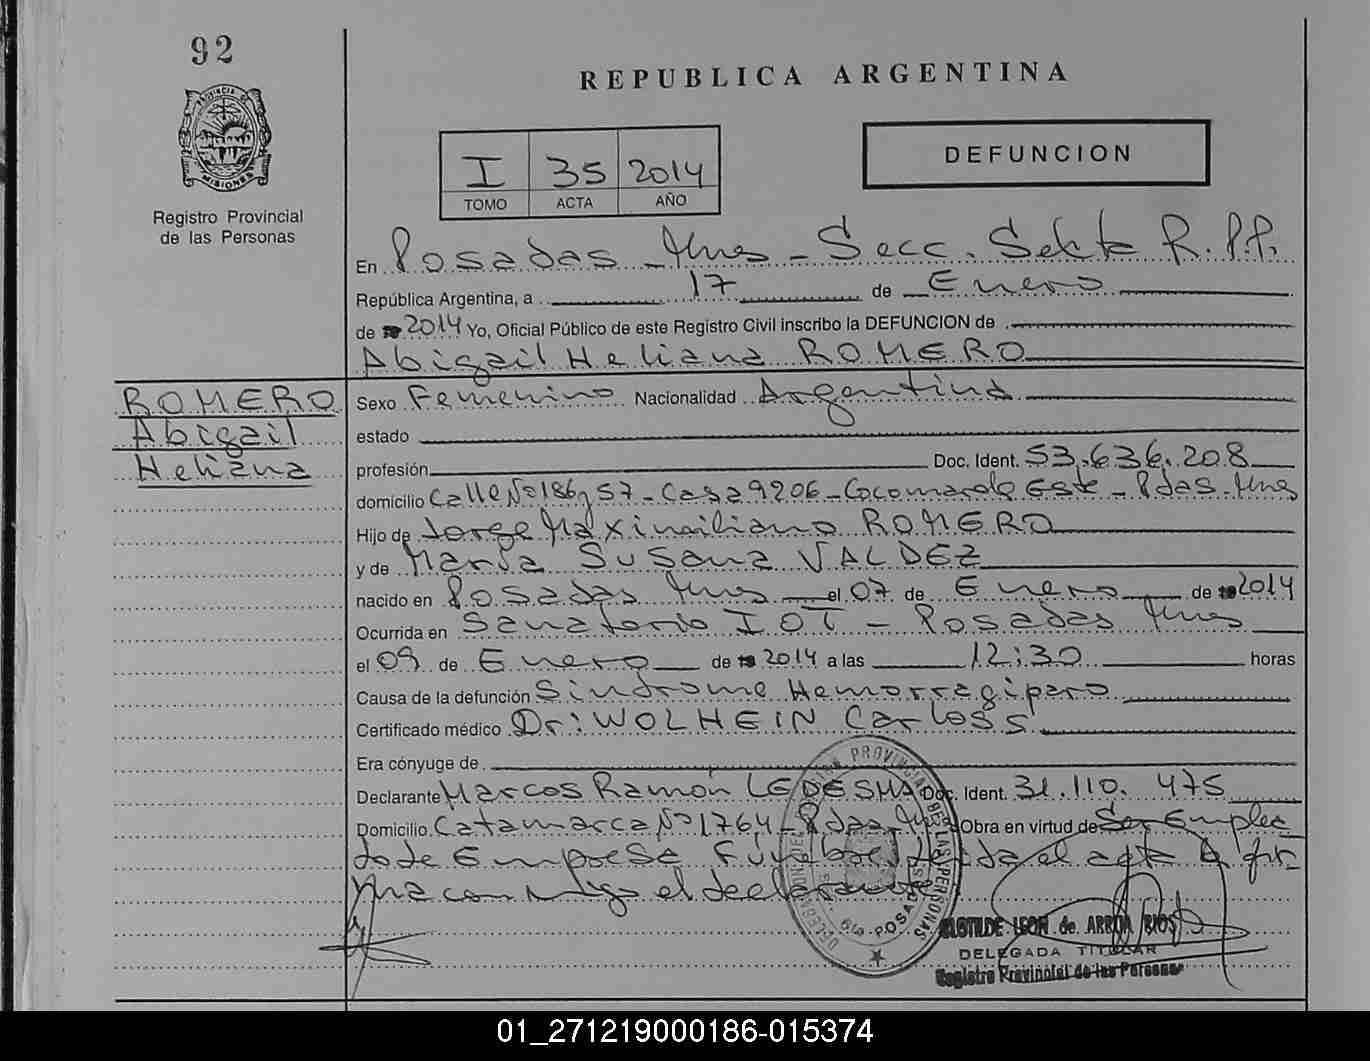 92
REPUBLICA ARGENTINA
PROVINCIA DE
MISIONES
Registro Provincial
de las Personas
I 35 2014
TOMO ACTA AÑO
DEFUNCION
En Posadas - Mnes - Secc. Sekta R.P.P.
República Argentina, a 17 de Enero
de 2014 Yo, Oficial Público de este Registro Civil inscribo la DEFUNCION de
Abigail Heliana ROMERO
ROMERO
Abigail
Heliana
Sexo Femenino Nacionalidad Argentina
estado
profesión Doc. Ident. 53.636.208
domicilio Calle Nº 186 y 57 - Casa 9206 - Cocomarola Este - Pdas - Mnes
Hijo de Jorge Maximiliano ROMERO
y de María Susana VALDEZ
nacido en Posadas Mnes el 07 de Enero de 2014
Ocurrida en Sanatorio IOT - Posadas Mnes
el 09 de Enero de 2014 a las 12:30 horas
Causa de la defunción Sindrome Hemorragiparo
Certificado médico Dr: WOLHEIN Carlos S
Era cónyuge de
Declarante Marcos Ramón LEDESMA Doc. Ident. 31.110.475
Domicilio Catamarca Nº 1764 - Pdas - Mnes Obra en virtud de Ser Emplea
do de Empresa Funebre, leida el acta la fir
ma conmigo el declarante
PROVINCIAL DE LAS PERSONAS
6ta - POSADAS
CLOTILDE LEON de ARRUA RIOS
DELEGADA TITULAR
Registro Provincial de las Personas
01_271219000186-015374